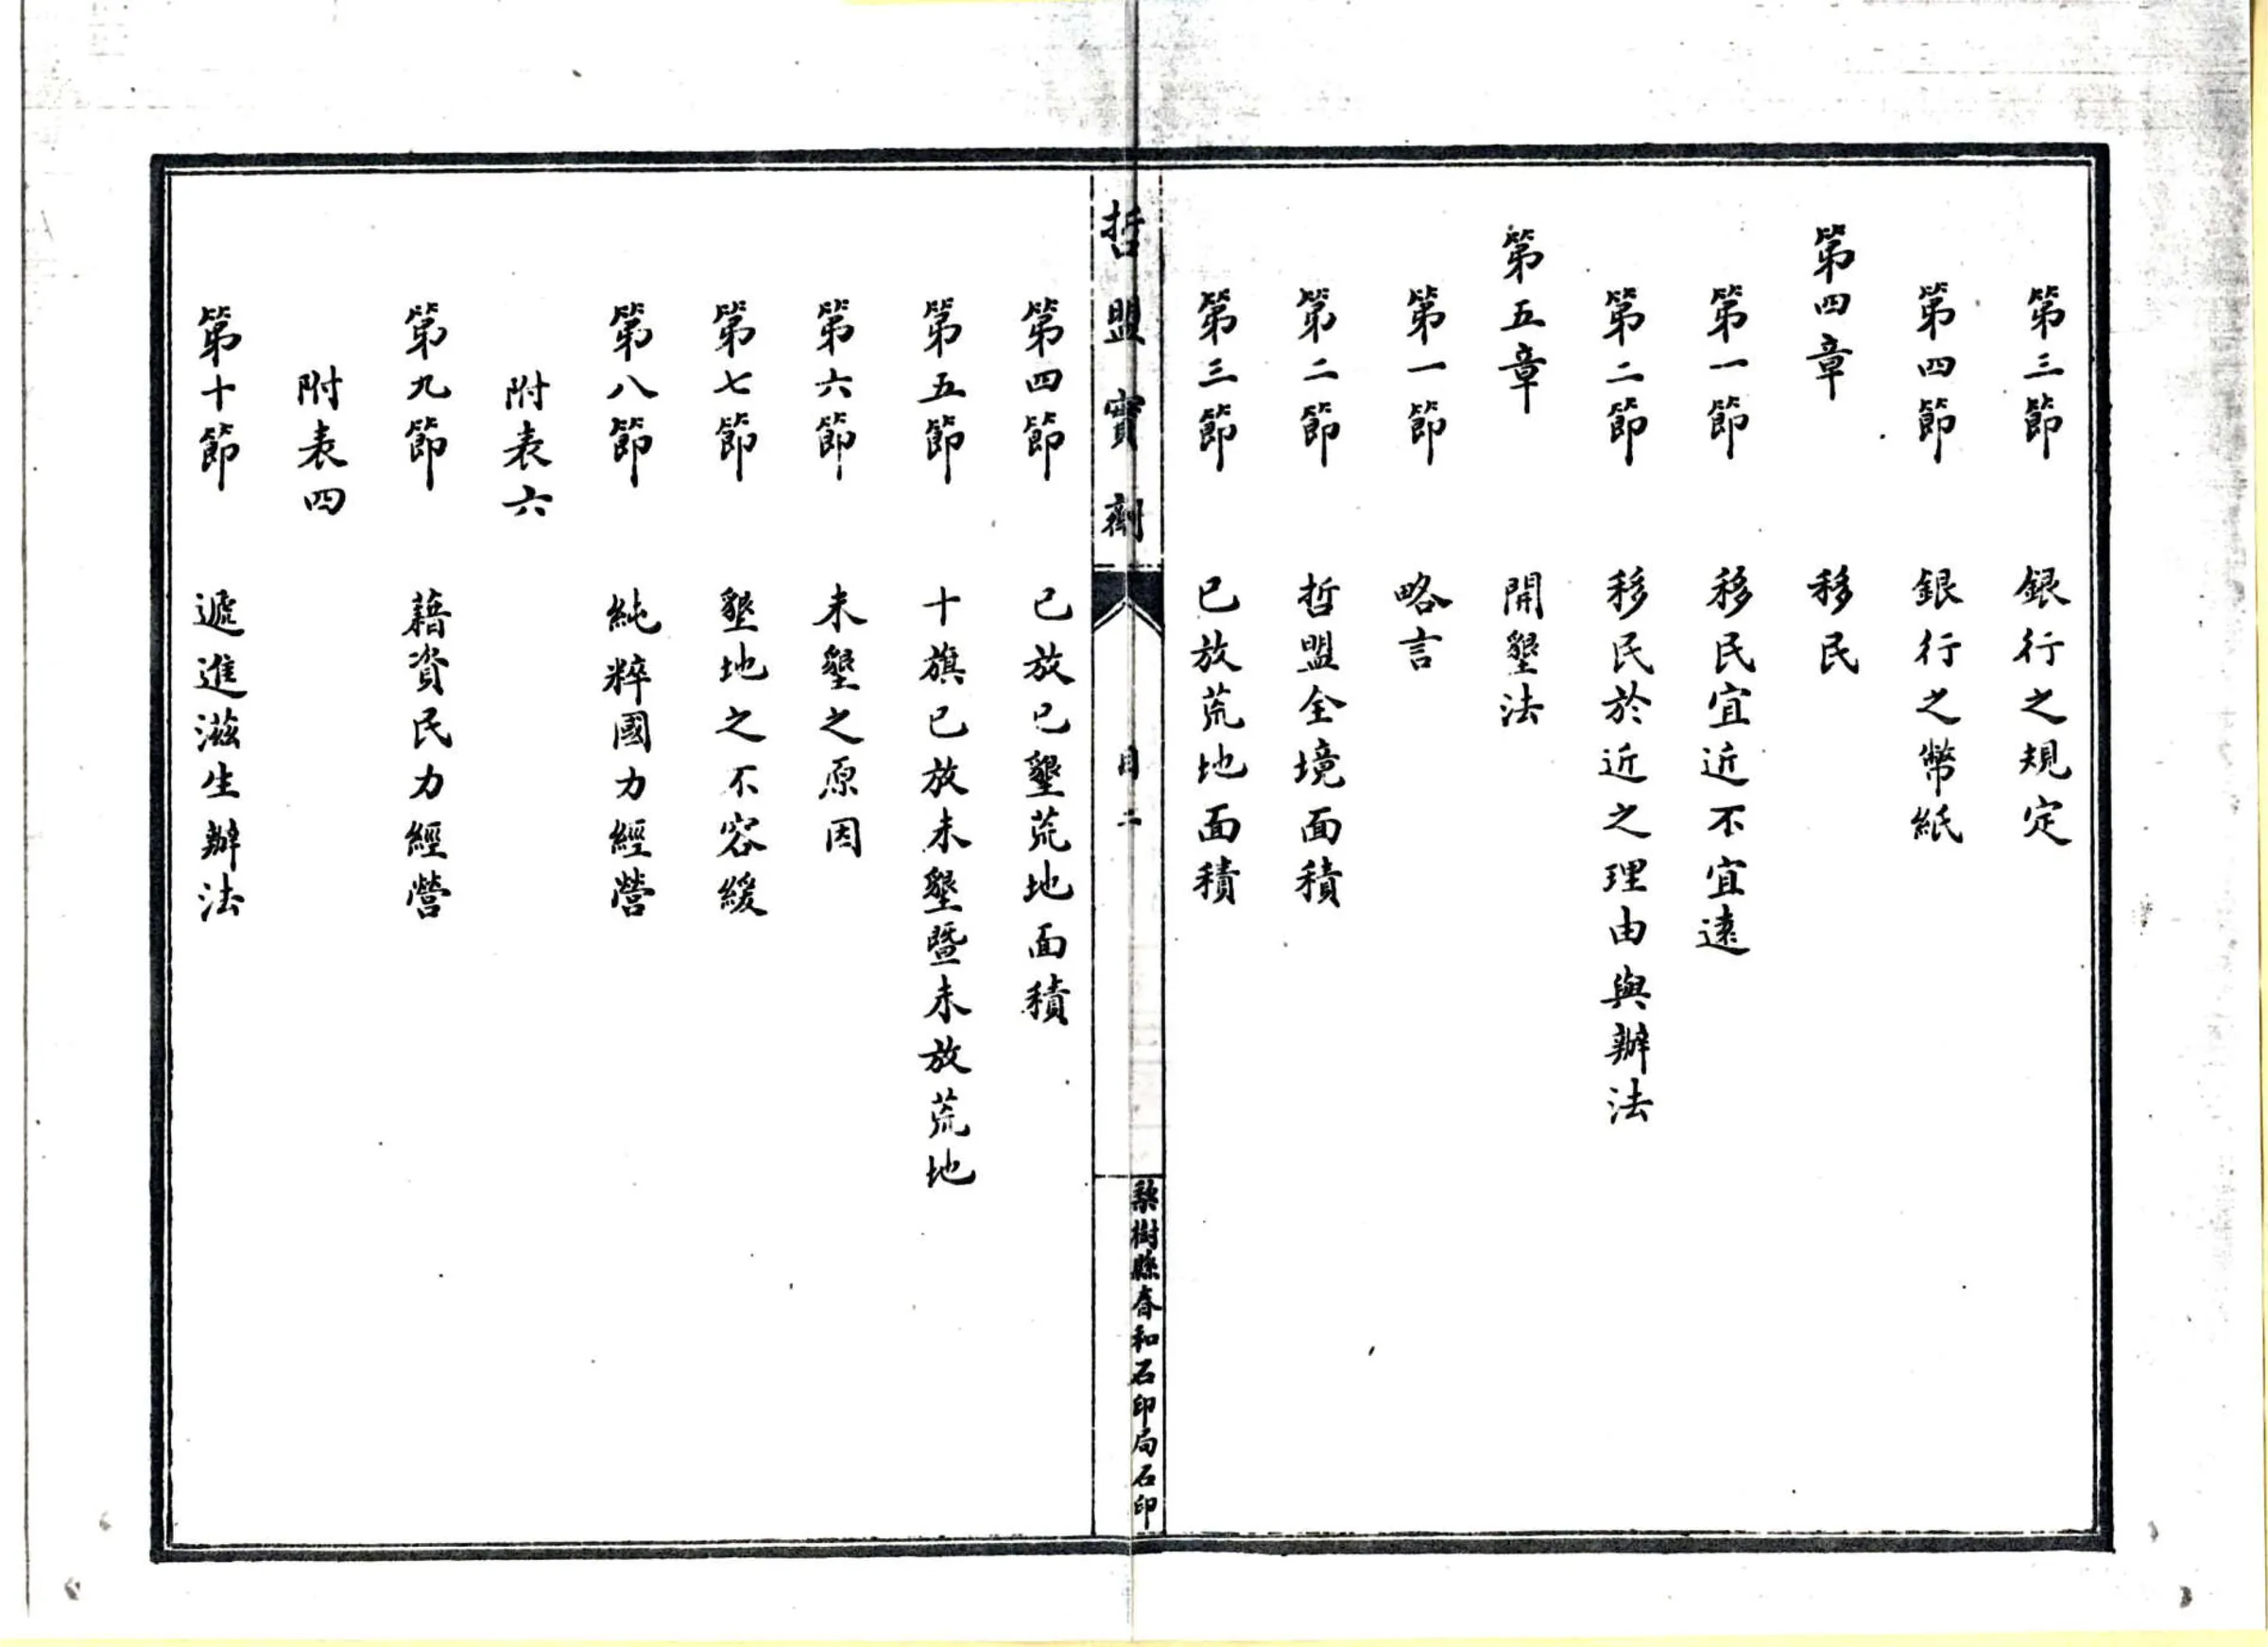 第三節 銀行之規定
第四節 銀行之幣紙
第四章 移民
第一節 移民宜近不宜遠
第二節 移民於近之理由與辦法
第五章 開墾法
第一節 略言
第二節 哲盟全境面積
第三節 已放荒地面積
哲盟實劑 目二 梨樹縣春和石印局石印
第四節 已放已墾荒地面積
第五節 十旗已放未墾暨未放荒地
第六節 未墾之原因
第七節 墾地之不容緩
第八節 純粹國力經營
附表六
第九節 藉資民力經營
附表四
第十節 遞進滋生辦法